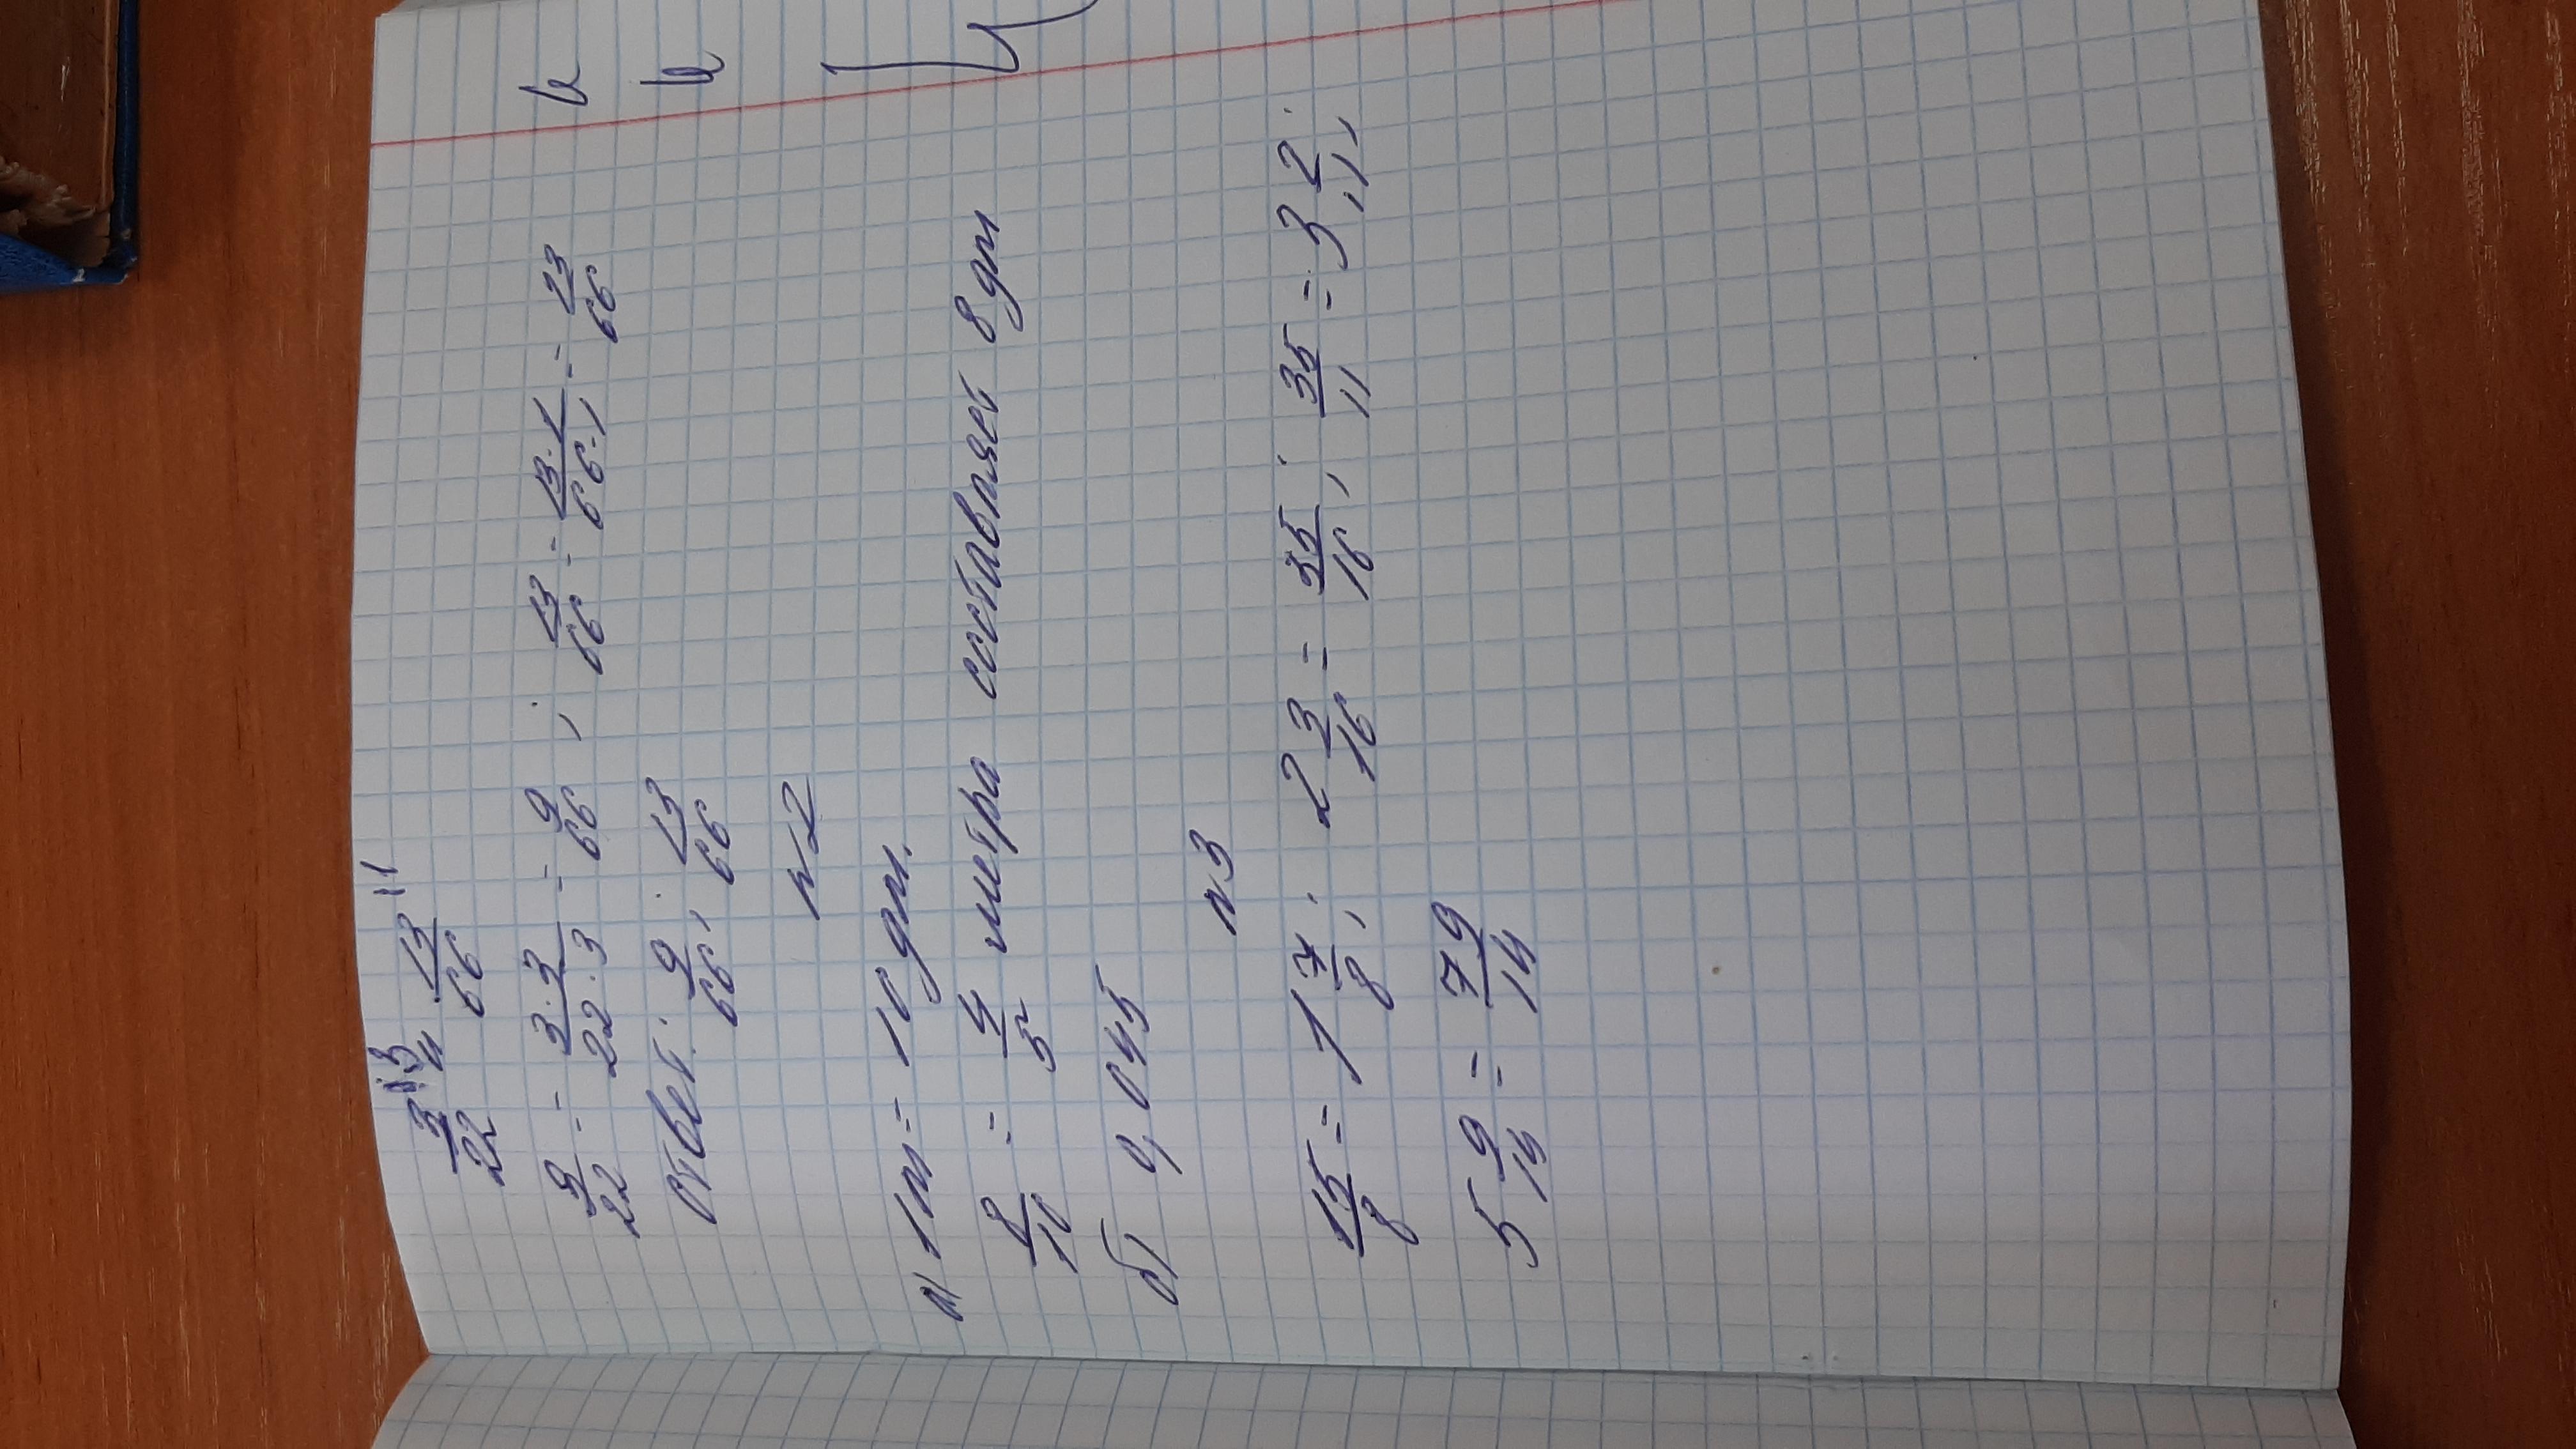 3/22 и 13/66
3/22 = 3·3/22·3 = 9/66 ; 13/66 = 13·1/66·1 = 13/66
Ответ: 9/66 ; 13/66
n2
а) 1м = 10 дм.
8/10 = 4/5 метра составляет 8 дм
б) 4,045
n3
15/8 = 1 7/8 ; 2 3/16 = 35/16 ; 35/11 = 3 2/11 ;
5 9/14 = 79/14